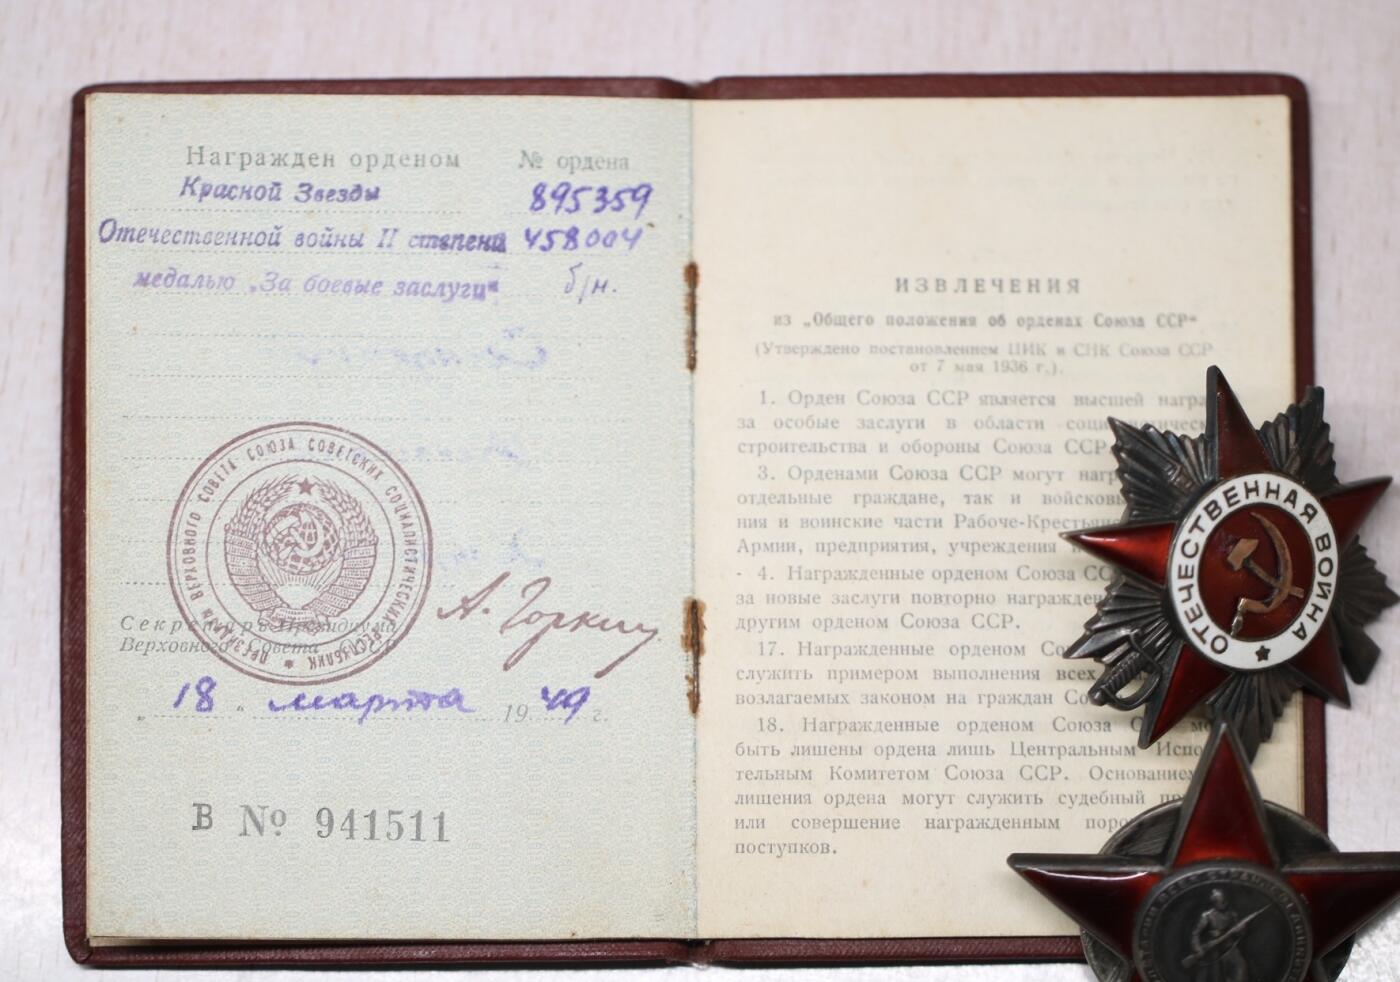 Награжден орденом № ордена
Красной Звезды 895359
Отечественной войны II степени 458004
медалью „За боевые заслуги“ б/н.
ПРЕЗИДИУМ ВЕРХОВНОГО СОВЕТА СОЮЗА СОВЕТСКИХ СОЦИАЛИСТИЧЕСКИХ РЕСПУБЛИК
Секретарь Президиума
Верховного Совета СССР
А. Горкин
„18“ марта 1949 г.
В № 941511
ИЗВЛЕЧЕНИЯ
из „Общего положения об орденах Союза ССР“
(Утверждено постановлением ЦИК и СНК Союза ССР
от 7 мая 1936 г.).
1. Орден Союза ССР является высшей
за особые заслуги в области
строительства и обороны Союза ССР
3. Орденами Союза ССР могут
отдельные граждане, так и
ния и воинские части
Армии, предприятия, учреждения
4. Награжденные орденом Союза
за новые заслуги повторно
другим орденом Союза ССР.
17. Награжденные орденом
служить примером выполнения всех
возлагаемых законом на граждан
18. Награжденные орденом Союза
быть лишены ордена лишь Центральным Испол
тельным Комитетом Союза ССР. Основанием
лишения ордена могут служить судебный
или совершение награжденным
поступков.
ОТЕЧЕСТВЕННАЯ ВОЙНА